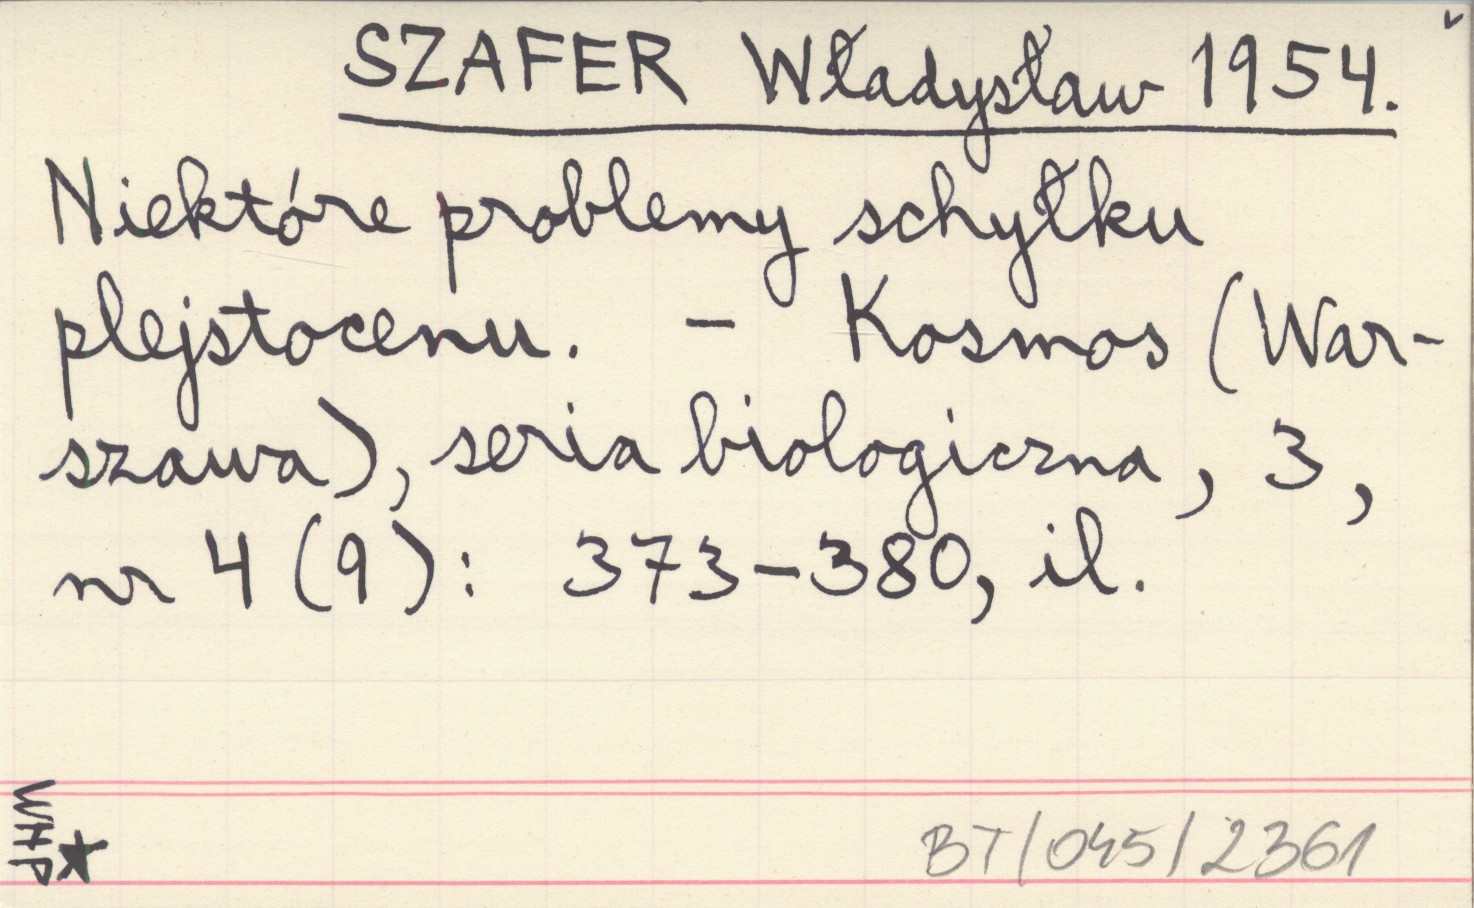 SZAFER Władysław 1954.
Niektóre problemy schyłku
plejstocenu. - Kosmos (War-
szawa), seria biologiczna, 3,
nr 4 (9): 373-380, il.
WHP
BT/045/2361